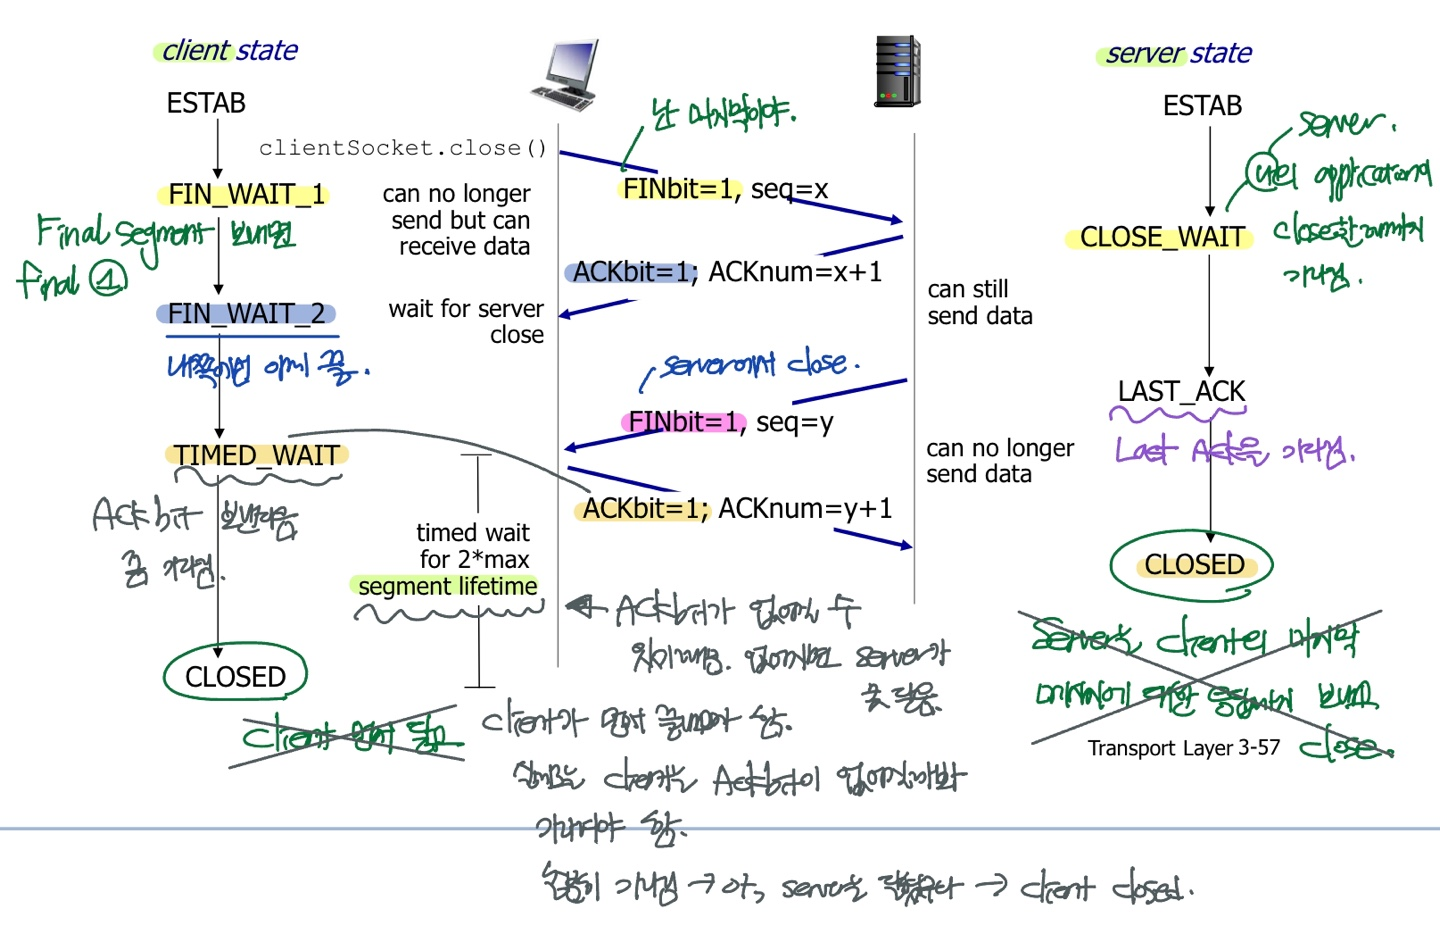 client state
server state
ESTAB
ESTAB
난 마지막이야.
server.
clientSocket.close()
FIN_WAIT_1
can no longer
send but can
receive data
FINbit=1, seq=x
CLOSE_WAIT
application이
close할때까지
기다림.
Final segment 보내면
final ①
ACKbit=1; ACKnum=x+1
can still
send data
FIN_WAIT_2
wait for server
close
내쪽에선 이제 끝.
server에서 close.
LAST_ACK
FINbit=1, seq=y
can no longer
send data
Last Ack을 기다림.
TIMED_WAIT
ACKbit=1; ACKnum=y+1
ACKbit 보낸다음
좀 기다림.
timed wait
for 2*max
segment lifetime
CLOSED
← ACKbit가 없어질 수
있기때문. 없어지면 server가
못 닫음.
Server는 client의 마지막
메시지에 대한 응답까지 보내고
close.
CLOSED
client가 먼저 닫고
client가 먼저 끝내야 함.
client는 Ackbit이 없어질까봐
기다려야 함.
충분히 기다림 → 아, server는 닫혔구나 → client closed.
Transport Layer 3-57